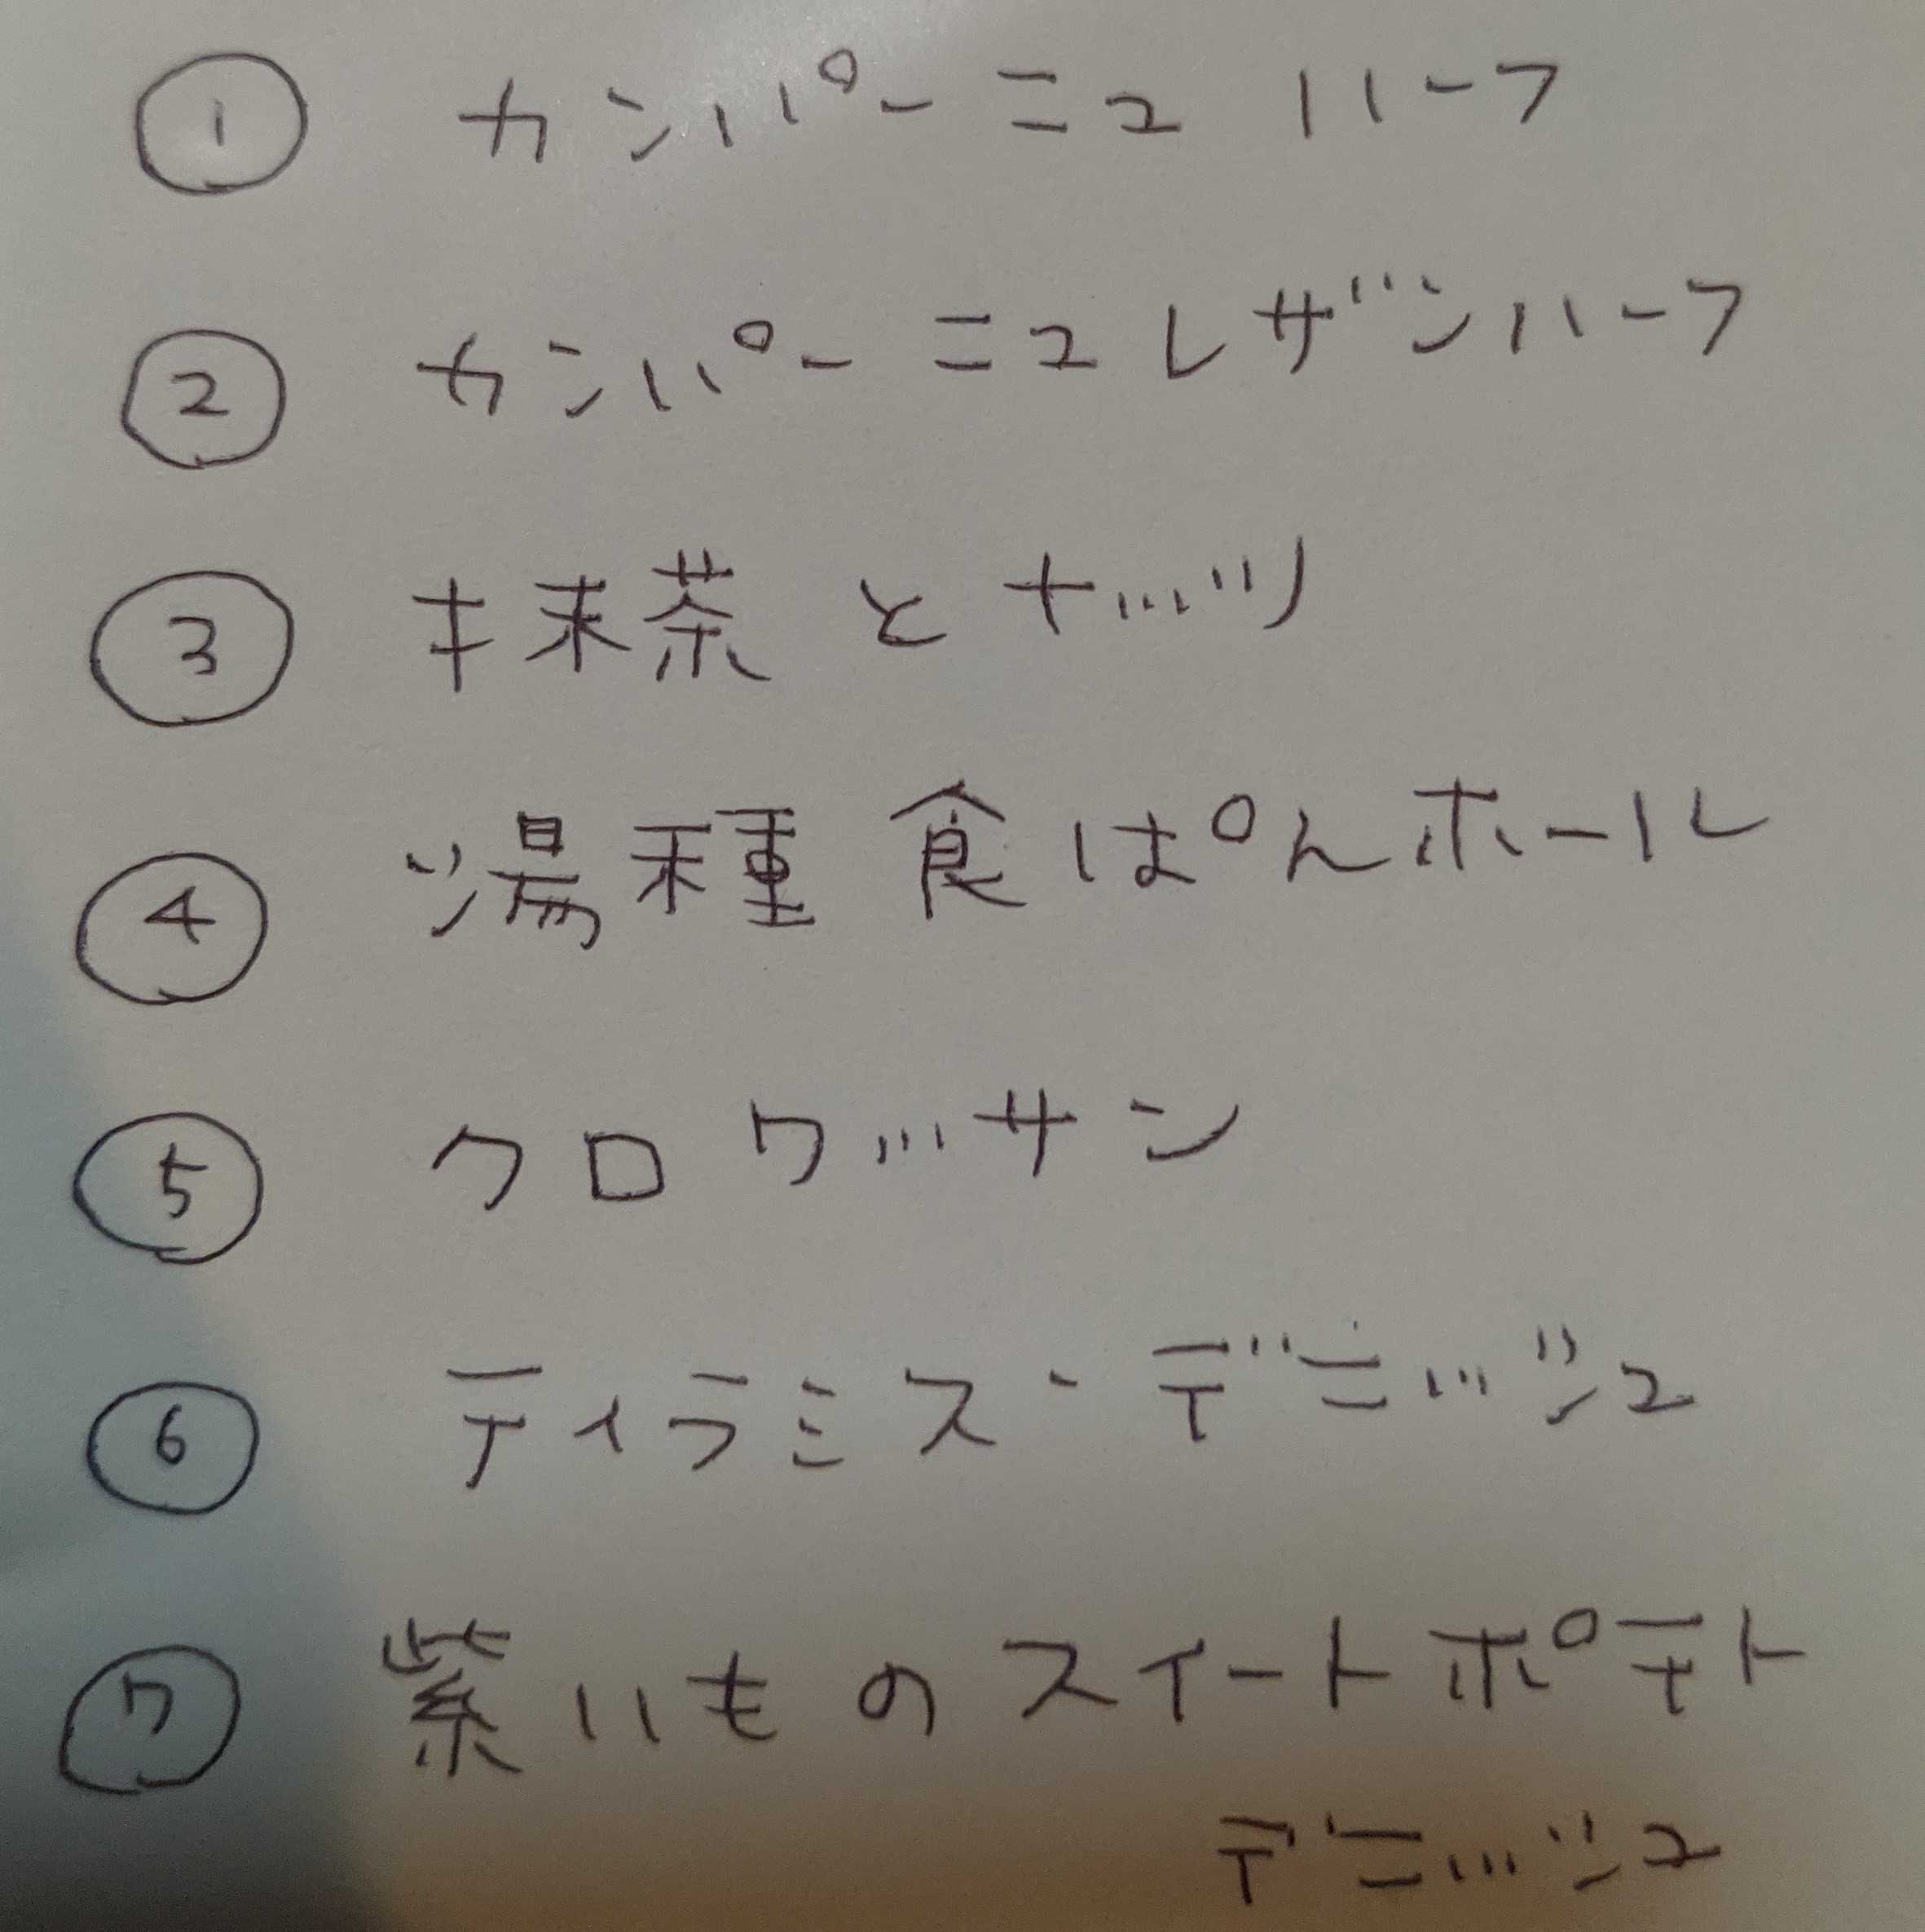 ① カンパーニュ ハーフ
② カンパーニュレザンハーフ
③ 抹茶とナッツ
④ 湯種食ぱんホール
⑤ クロワッサン
⑥ ティラミス・デニッシュ
⑦ 紫いものスイートポテト
デニッシュ